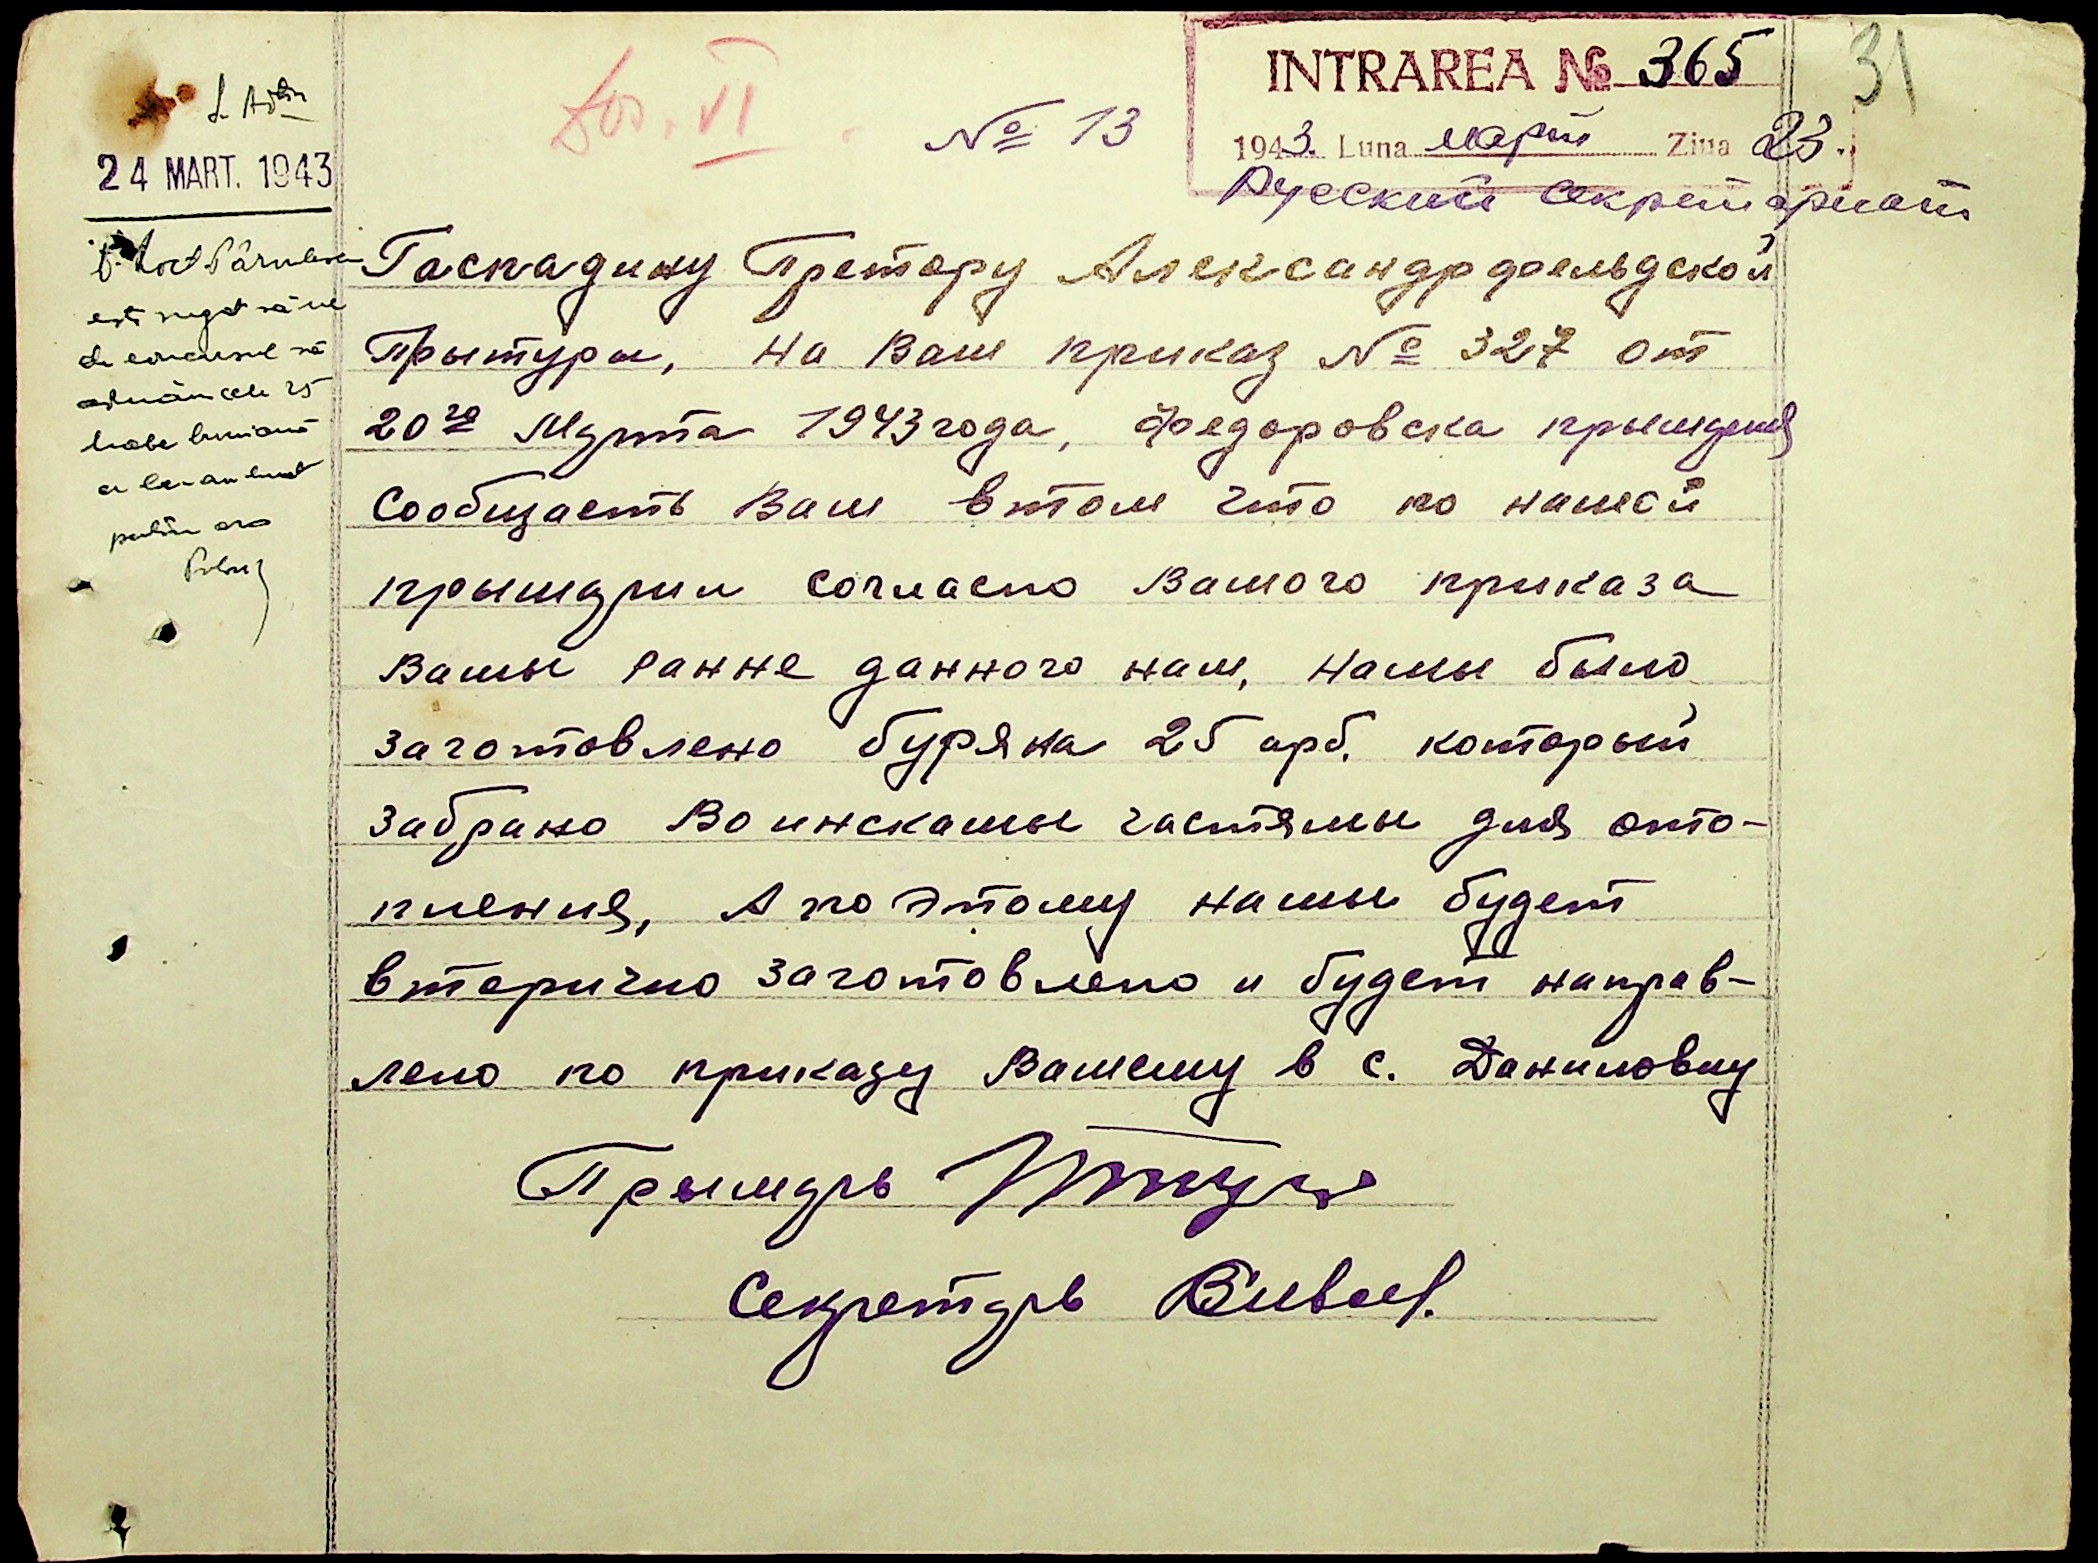 INTRAREA № 365
31
Dos. VI
№ 13
1943. Luna март Ziua 23.
Русский Секретариат
24 MART. 1943
este rugat să ne
de concursul să
25
Гаспадину Претору Александрфельдской
Прытуры, На Ваш приказ № 327 от
20го Марта 1943 года, Федоровска прымария
Сообщаеть Вам втом что по нашей
прымарии согласно Вашого приказа
Вамы ранне данного нам, Намы было
заготовлено буряна 25 арб. который
забрано Воинскамы частямы для ото-
пления, А поэтому намы будет
вторично заготовлено и будет направ-
лено по приказу Вашему в с. Даниловку
Прымарь
Секретарь